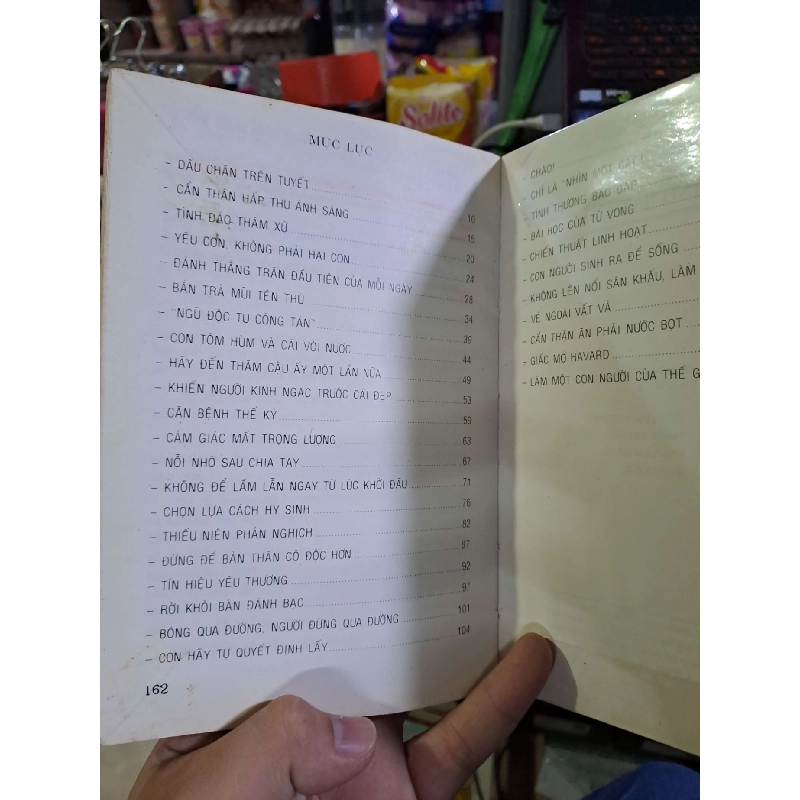 Solite
MỤC LỤC
- DẤU CHÂN TRÊN TUYẾT
- CẨN THẬN HẤP THU ÁNH SÁNG 10
- TÌNH ĐẦO THẢM XỬ 15
- YÊU CON, KHÔNG PHẢI HẠI CON 20
- ĐÁNH THẮNG TRẬN ĐẦU TIÊN CỦA MỖI NGÀY 24
- BẮN TRẢ MŨI TÊN THÙ 28
- "NGŨ ĐỘC TỰ CÔNG TÁN" 34
- CON TÔM HÙM VÀ CÁI VÒI NƯỚC 39
- HÃY ĐẾN THĂM CẬU ẤY MỘT LẦN NỮA 44
- KHIẾN NGƯỜI KINH NGẠC TRƯỚC CÁI ĐẸP 49
- CĂN BỆNH THẾ KỶ 53
- CẢM GIÁC MẤT TRỌNG LƯỢNG 59
- NỖI NHỚ SAU CHIA TAY 63
- KHÔNG ĐỂ LẦM LẪN NGAY TỪ LÚC KHỞI ĐẦU 67
- CHỌN LỰA CÁCH HY SINH 71
- THIẾU NIÊN PHẢN NGHỊCH 76
- ĐỪNG ĐỂ BẢN THÂN CÔ ĐỘC HƠN 82
- TÍN HIỆU YÊU THƯƠNG 87
- RỜI KHỎI BÀN ĐÁNH BẠC 92
- BÓNG QUA ĐƯỜNG, NGƯỜI ĐỪNG QUA ĐƯỜNG 97
- CON HÃY TỰ QUYẾT ĐỊNH LẤY 101
104
162
- CHÀO!
- CHỈ LÀ "NHÌN MỘT
- TÌNH THƯƠNG BÁO ĐÁP
- BÀI HỌC CỦA TỬ VONG
- CHIẾN THUẬT LINH HOẠT
- CON NGƯỜI SINH RA ĐỂ SỐNG
- KHÔNG LÊN NỔI SÂN KHẤU, LÀM
- VẺ NGOÀI VẤT VẢ
- CẨN THẬN ĂN PHẢI NƯỚC BỌT
- GIẤC MƠ HAVARD
- LÀM MỘT CON NGƯỜI CỦA THẾ G